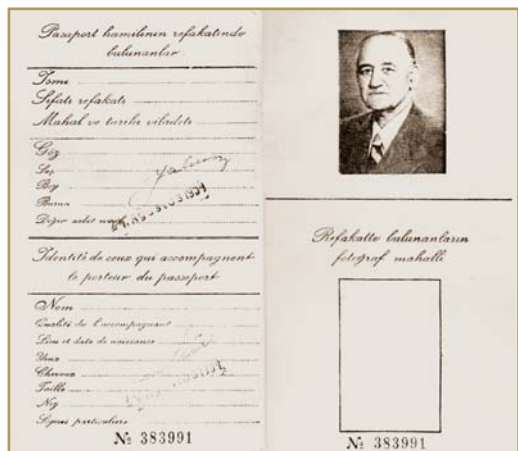 Pasaport hamilinin refakatinde
bulunanlar
İsmi
Sıfatı refakatı
Mahal ve tarihi vilâdeti
Göz
Saç
Boy
Burun
Diğer
AĞUSTOS 1951
Identité de ceux qui accompagnent
le porteur du passeport
Nom
Qualité de l'accompagnant
Lieu et date de naissance
Yeux
Cheveux
Taille
Nez
Signes particuliers
№ 383991
Refakatte bulunanların
fotoğraf mahalli
№ 383991